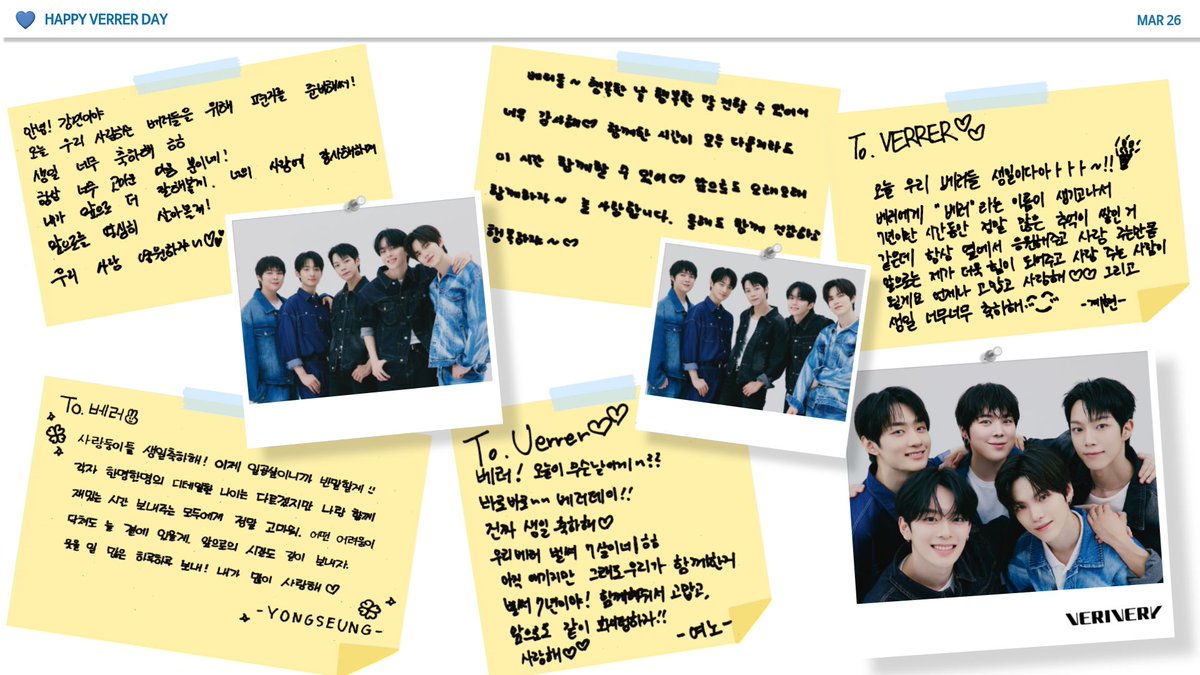 HAPPY VERRER DAY
MAR 26
안녕! 강민이야
오늘 우리 사랑하는 베러들을 위해 편지를 준비했어!
생일 너무 축하해 ㅎㅎ
항상 너무 고마운 마음 뿐이네!
내가 앞으로 더 잘해볼게. 너의 사랑에 감사해하며
앞으로를 열심히 살아볼게!
우리 사랑 영원하자~♡
베러들~ 행복한 날 행복한 말 전달할 수 있어서
너무 감사해♡ 함께한 시간이 모두 다
이 시간 함께할 수 있어♡ 앞으로도 오래오래
함께하자~ 늘 사랑합니다. 올해도 함께 건강하고
행복하자~♡
To. VERRER♡♡
오늘 우리 베러들 생일이다아ㅏㅏㅏ~!!
베러에게 "베러"라는 이름이 생기고나서
7년이란 시간동안 정말 많은 추억이 쌓인 거
같은데 항상 옆에서 응원해주고 사랑 주는만큼
앞으로는 제가 더욱 힘이 되어주고 사랑 주는 사람이
될게요 언제나 고맙고 사랑해♡♡ 그리고
생일 너무너무 축하해
-계현-
To. 베러
사랑둥이들 생일축하해! 이제 일곱살이니까 반말할게
각자 한명한명의 디테일한 나이는 다르겠지만 나랑 함께
재밌는 시간 보내주는 모두에게 정말 고마워. 어떤 어려움이
닥쳐도 늘 곁에 있을게. 앞으로의 시간도 같이 보내자.
웃을 일 많은 하루하루 보내! 내가 많이 사랑해♡
-YONGSEUNG-
To. Verrer♡♡
베러! 오늘이 무슨날이게~??
바로바로~~ 베러데이!!
진짜 생일 축하해♡
우리베러 벌써 7살이네 ㅎㅎ
아직 애기지만 그래도 우리가 함께한지
벌써 7년이야! 함께해줘서 고맙고,
앞으로도 같이 모험하자!!
사랑해♡♡
-연호-
VERIVERY